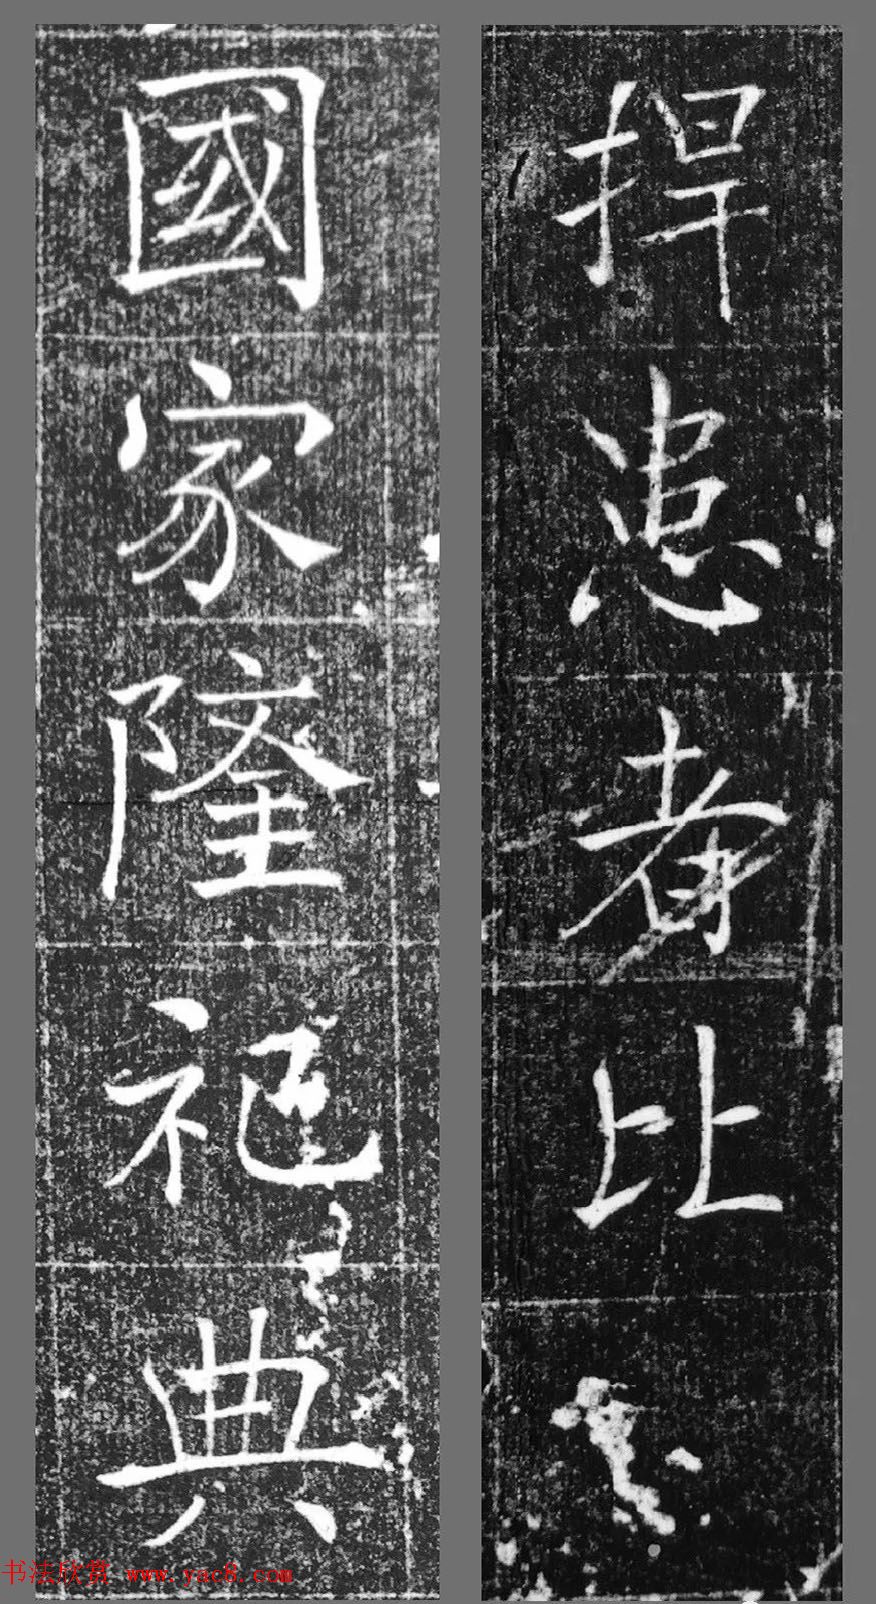 捍患者比
國家隆祀典
书法欣赏 www.yac8.com